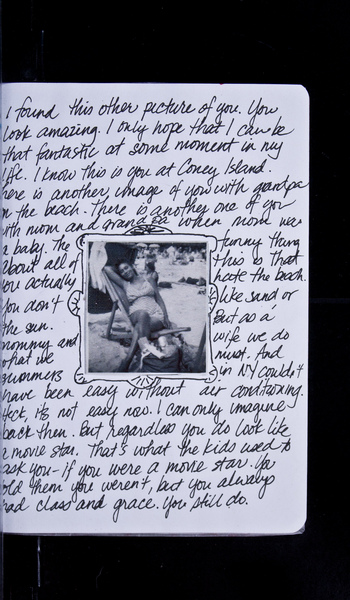 I found this other picture of you. You
look amazing. I only hope that I can be
that fantastic at some moment in my
life. I know this is you at Coney Island.
here is another image of you with grandpa
on the beach. There is another one of you
with mom and grandpa when mom was
a baby. The funny thing
about all of this is that
you actually hate the beach.
You don't like sand or
the sun. But as a
mommy and wife we do
what we must. And
summers in NY couldn't
have been easy without air conditioning.
Heck, it's not easy now. I can only imagine
back then. But regardless you do look like
a movie star. That's what the kids used to
ask you - if you were a movie star. You
told them you weren't, but you always
had class and grace. You still do.